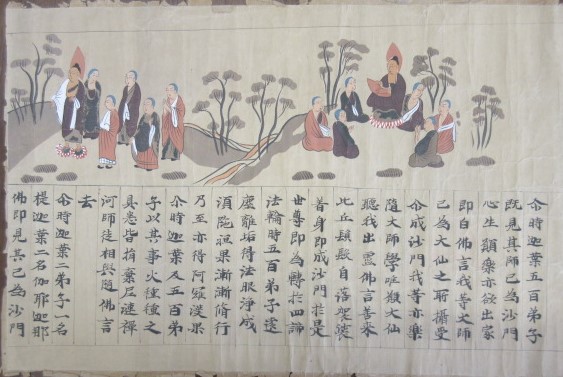 尒時迦葉五百弟子
既見其師已為沙門
心生願樂亦欲出家
即白佛言我等大師
已為大仙之所攝受
今成沙門我等亦樂
隨大師學唯願大仙
聽我出家佛言善來
比丘鬚髮自落袈裟
著身即成沙門於是
世尊即為轉於四諦
法輪時五百弟子遠
塵離垢得法眼淨成
須陁洹果漸漸脩行
乃至亦得阿羅漢果
尒時迦葉及五百弟
子以其事火種種之
具悉皆捐棄尼連禪
河師徒相與隨佛
去
尒時迦葉二弟子一名
提迦葉二名伽耶迦
即見其已為沙門